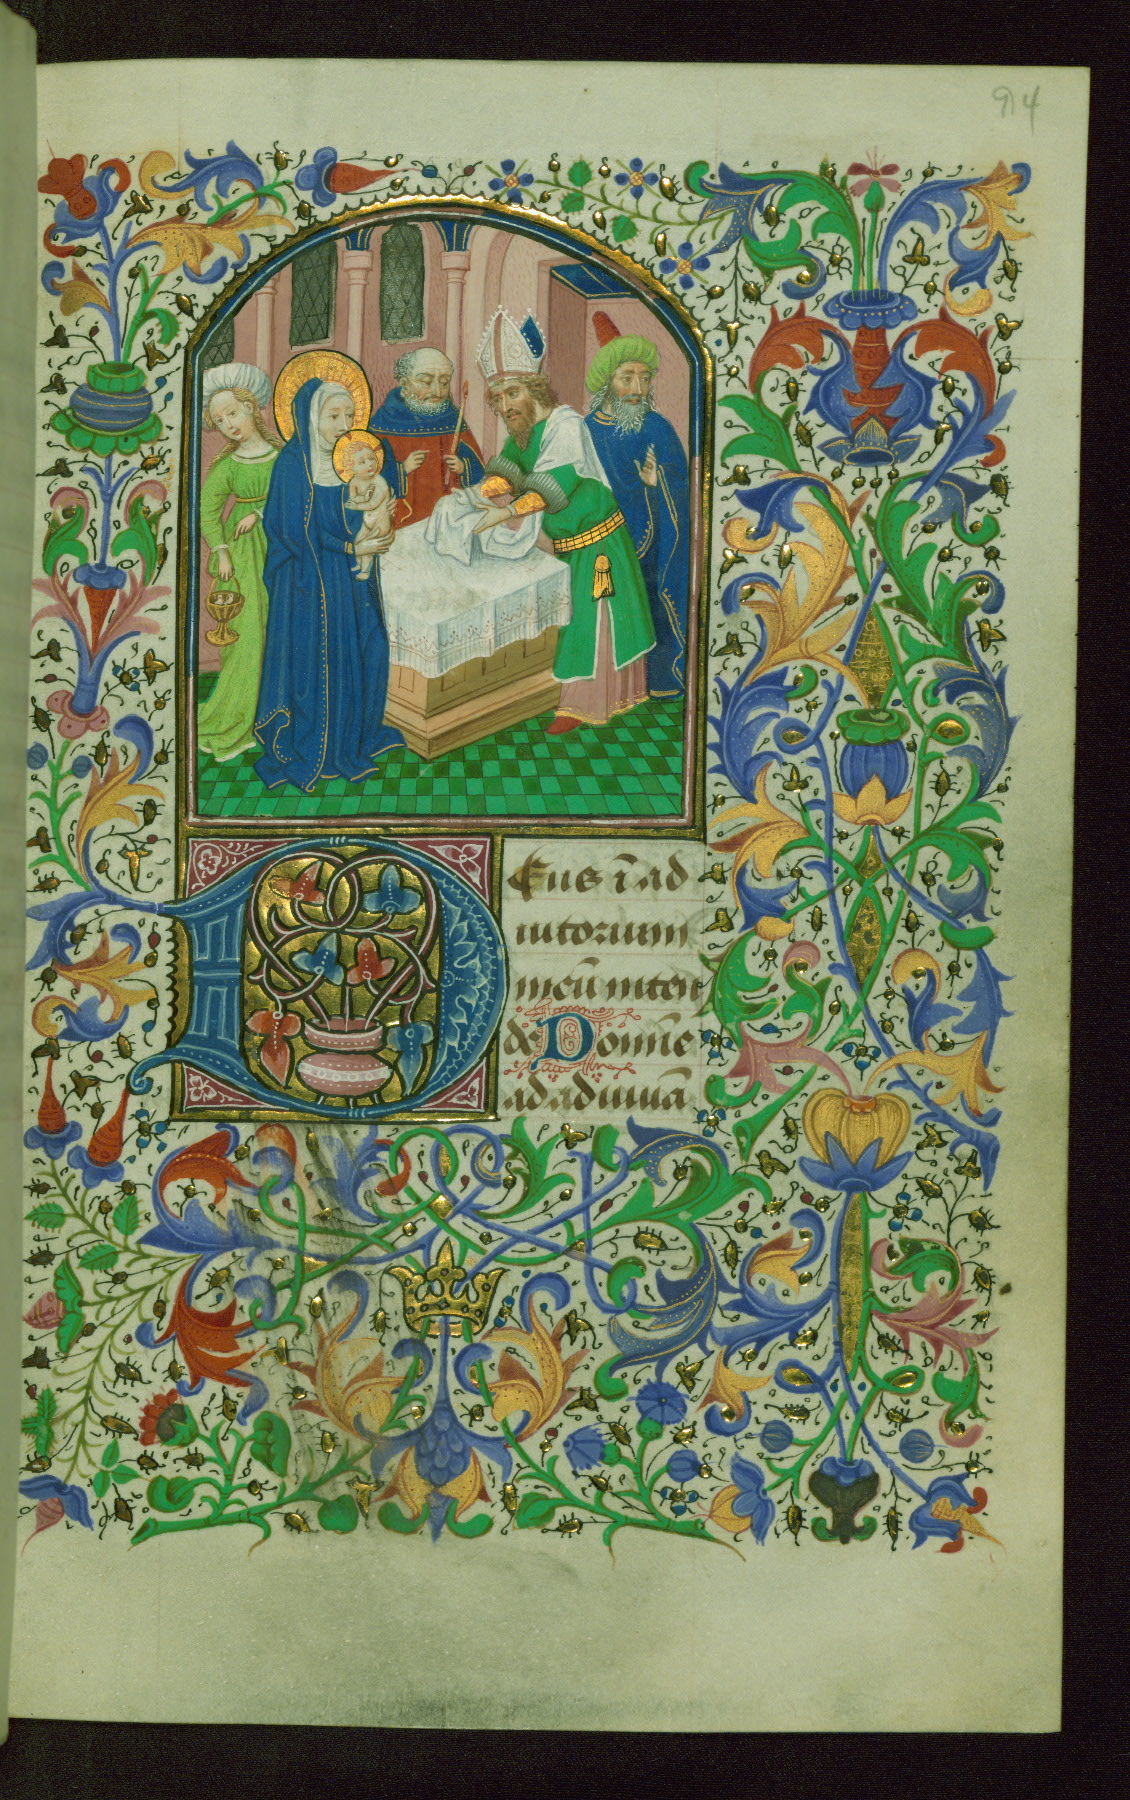 94
Deus ī ad
iutorium
meū inten
de Domīe
ad adiuuā